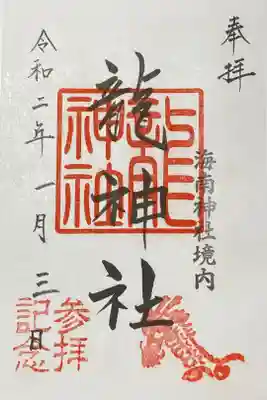 奉拝
海南神社境内
龍神社
令和二年一月三日
参拝
記念